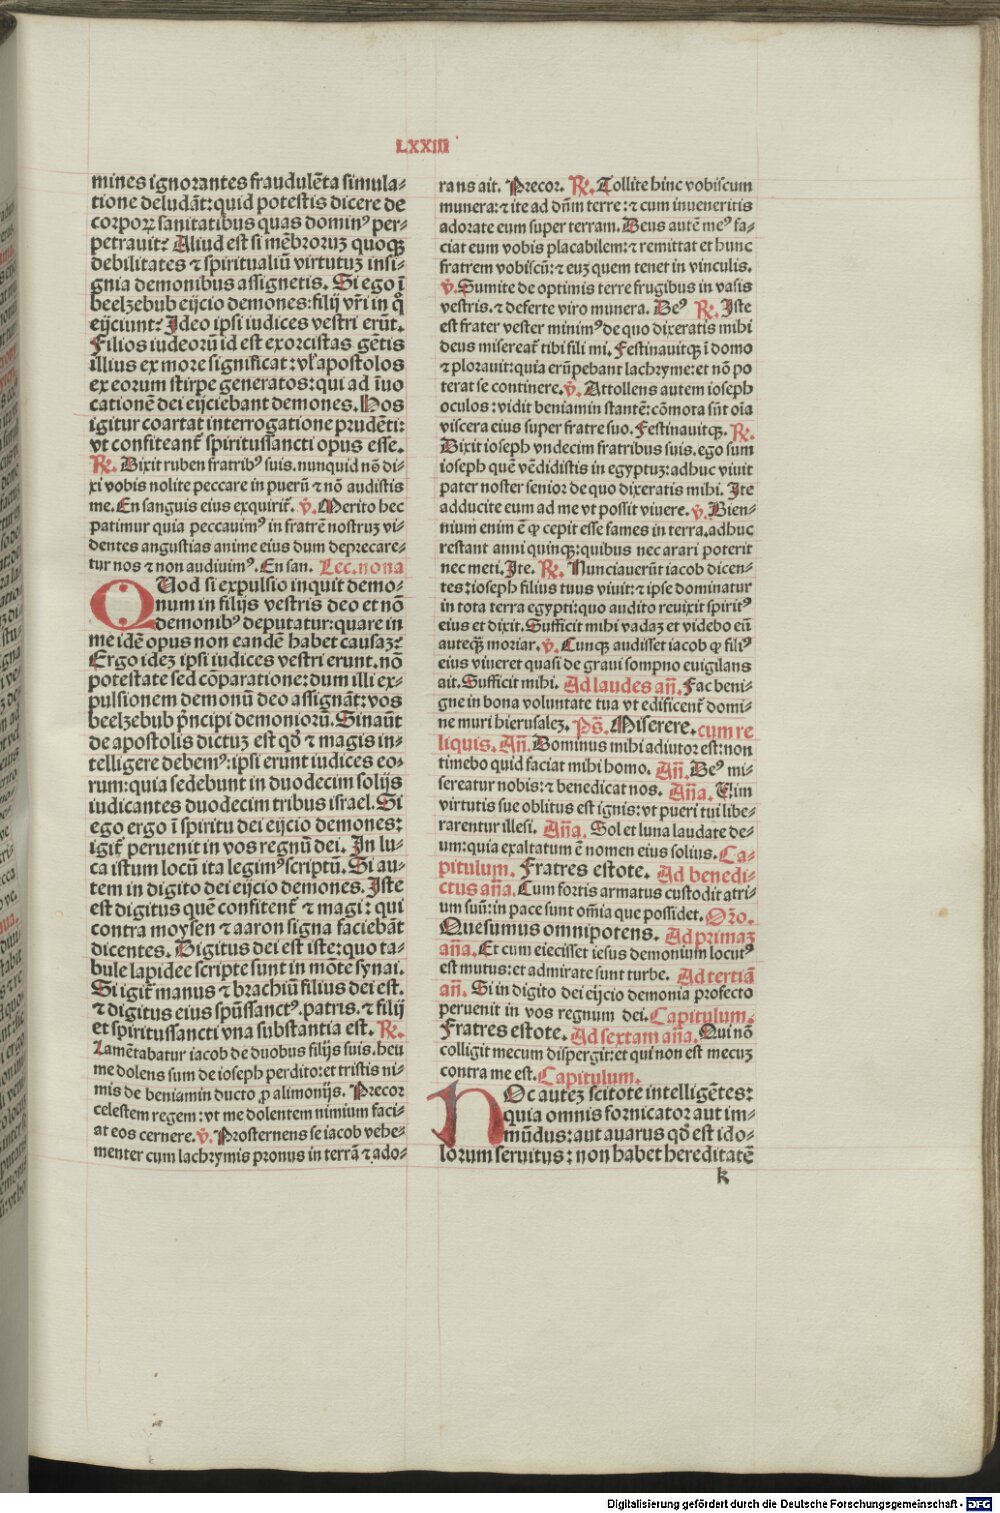 LXXIII
mines ignorantes fraudulēta simula⸗
tione deludāt: quid potestis dicere de
corpoꝝ sanitatibus quas dominꝰ per⸗
petrauit? Aliud est si mēbrorum quoqꝫ
debilitates ⁊ spiritualiū virtutum insi⸗
gnia demonibus assignetis. Si ego ī
beelzebub eijcio demones: filij vr̄i in q̊
eijciunt? Ideo ipsi iudices vestri erūt.
Filios iudeorū id est exorcistas gētis
illius ex more significat: vl̓ apostolos
ex eorum stirpe generatos: qui ad īuo
cationē dei eijciebant demones. Hos
igitur coartat interrogatione prudēti:
vt confiteant᷑ spiritussancti opus esse.
℟. Dixit ruben fratribꝰ suis. nunquid nō di⸗
xi vobis nolite peccare in puerū ⁊ nō audistis
me. En sanguis eius exquirit᷑. ℣. Merito hec
patimur quia peccauimꝰ in fratrē nostrum vi⸗
dentes angustias anime eius dum deprecare⸗
tur nos ⁊ non audiuimꝰ. En san. Lec. nona
QUod si expulsio inquit demo⸗
num in filijs vestris deo et nō
demonibꝰ deputatur: quare in
me idē opus non eandē habet causam?
Ergo idem ipsi iudices vestri erunt. nō
potestate sed cōparatione: dum illi ex⸗
pulsionem demonū deo assignāt: vos
beelzebub prīncipi demoniorū. Sin aūt
de apostolis dictum est qđ ⁊ magis in⸗
telligere debemꝰ: ipsi erunt iudices eo⸗
rum: quia sedebunt in duodecim solijs
iudicantes duodecim tribus israel. Si
ego ergo ī spiritu dei eijcio demones:
igit᷑ peruenit in vos regnū dei. In lu⸗
ca istum locū ita legimꝰ scriptū. Si au⸗
tem in digito dei eijcio demones. Iste
est digitus quē confitent᷑ ⁊ magi: qui
contra moysen ⁊ aaron signa faciebāt
dicentes. Digitus dei est iste: quo ta⸗
bule lapidee scripte sunt in mōte synai.
Si igit᷑ manus ⁊ brachiū filius dei est.
⁊ digitus eius spūssanctꝰ. patris. ⁊ filij
et spiritussancti vna substantia est. ℟.
Lamētabatur iacob de duobus filijs suis. heu
me dolens sum de ioseph perdito: et tristis ni⸗
mis de beniamin ducto ꝓ alimonijs. Precor
celestem regem: vt me dolentem nimium faci⸗
at eos cernere. ℣. Prosternens se iacob vehe⸗
menter cum lachrymis pronus in terrā ⁊ ado⸗
rans ait. Precor. ℟. Tollite hinc vobiscum
munera: ⁊ ite ad dn̄m terre: ⁊ cum inueneritis
adorate eum super terram. Deus autē meꝰ fa⸗
ciat eum vobis placabilem: ⁊ remittat et hunc
fratrem vobiscū: ⁊ eum quem tenet in vinculis.
℣. Sumite de optimis terre frugibus in vasis
vestris. ⁊ deferte viro munera. Deꝰ ℟. Iste
est frater vester minimꝰ de quo dixeratis mihi
deus misereat᷑ tibi fili mi. Festinauitqꝫ ī domo
⁊ plorauit: quia erūpebant lachryme: et nō po
terat se continere. ℣. Attollens autem ioseph
oculos: vidit beniamin stantē: cōmota sūt oīa
viscera eius super fratre suo. Festinauitqꝫ. ℟.
Dixit ioseph vndecim fratribus suis. ego sum
ioseph quē vēdidistis in egyptum: adhuc viuit
pater noster senior de quo dixeratis mihi. Ite
adducite eum ad me vt possit viuere. ℣. Bien⸗
nium enim ē ꝙ cepit esse fames in terra. adhuc
restant anni quinqꝫ: quibus nec arari poterit
nec meti. Ite. ℟. Nunciauerūt iacob dicen⸗
tes: ioseph filius tuus viuit: ⁊ ipse dominatur
in tota terra egypti: quo audito reuixit spiritꝰ
eius et dixit. Sufficit mihi vadam et videbo eū
anteqꝫ moriar. ℣. Cunqꝫ audisset iacob ꝙ filiꝰ
eius viueret quasi de graui sompno euigilans
ait. Sufficit mihi. Ad laudes an̄. Fac beni⸗
gne in bona voluntate tua vt edificent᷑ domi⸗
ne muri hierusalem. Ps̄. Miserere. cum re
liquis. An̄. Dominus mihi adiutor est: non
timebo quid faciat mihi homo. An̄. Deꝰ mi⸗
sereatur nobis: ⁊ benedicat nos. An̄a. Uim
virtutis sue oblitus est ignis: vt pueri tui libe⸗
rarentur illesi. An̄a. Sol et luna laudate de⸗
um: quia exaltatum ē nomen eius solius. Ca⸗
pitulum. Fratres estote. Ad benedi⸗
ctus an̄a. Cum fortis armatus custodit atri⸗
um suū: in pace sunt om̄ia que possidet. Or̄o.
Quesumus omnipotens. Ad primam
an̄a. Et cum eiecisset iesus demonium locutꝰ
est mutus: et admirate sunt turbe. Ad tertiā
an̄. Si in digito dei eijcio demonia profecto
peruenit in vos regnum dei. Capitulum.
Fratres estote. Ad sextam an̄a. Qui nō
colligit mecum dispergit: et qui non est mecum
contra me est. Capitulum.
HOc autem scitote intelligētes:
quia omnis fornicator aut im⸗
mūdus: aut auarus qđ est ido⸗
lorum seruitus: non habet hereditatē
k
Digitalisierung gefördert durch die Deutsche Forschungsgemeinschaft - DFG